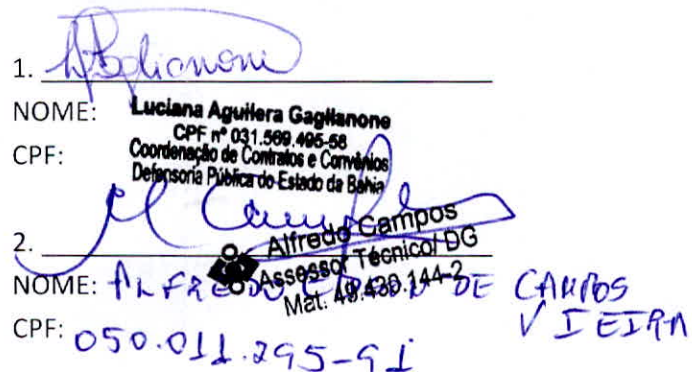 1. 
NOME: Luciana Aguilera Gaglianone
CPF nº 031.569.495-58
CPF: Coordenação de Contratos e Convênios
Defensoria Pública do Estado da Bahia
2. 
Alfredo Campos
Assessor Técnico/ DG
Mat. 49.430.144-2
NOME: ALFREDO DE CAMPOS
VIEIRA
CPF: 050.011.295-91